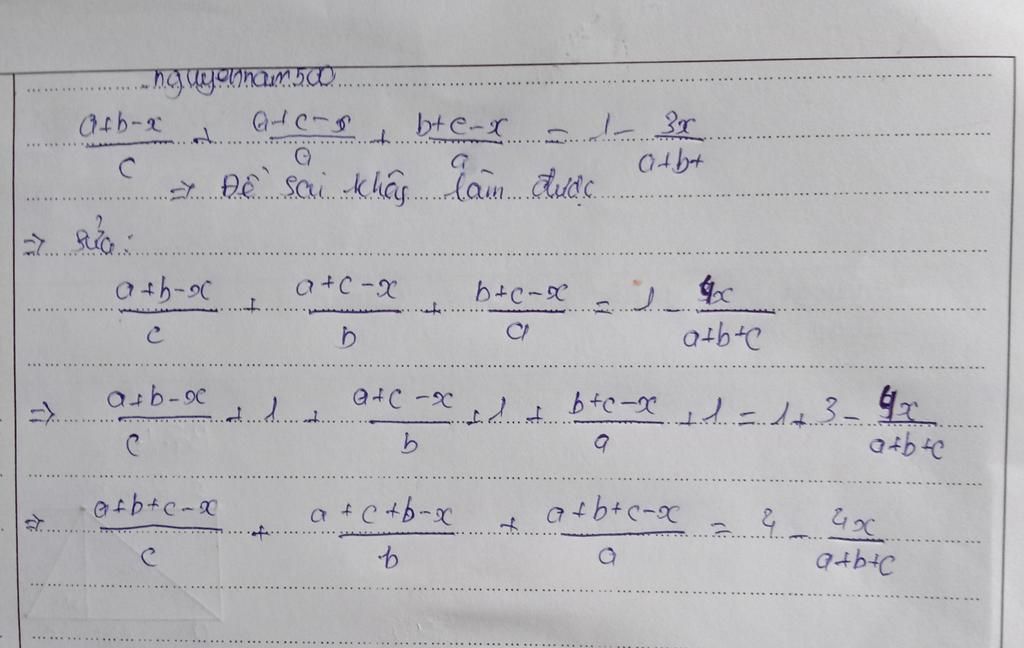 nguyennam500
a+b-x/c + a+c-x/a + b+c-x/a = 1 - 3x/a+b+
=> Đề sai không làm được
=> sửa:
a+b-x/c + a+c-x/b + b+c-x/a = 1 - 4x/a+b+c
=> a+b-x/c + 1 + a+c-x/b + 1 + b+c-x/a + 1 = 1 + 3 - 4x/a+b+c
=> a+b+c-x/c + a+c+b-x/b + a+b+c-x/a = 4 - 4x/a+b+c